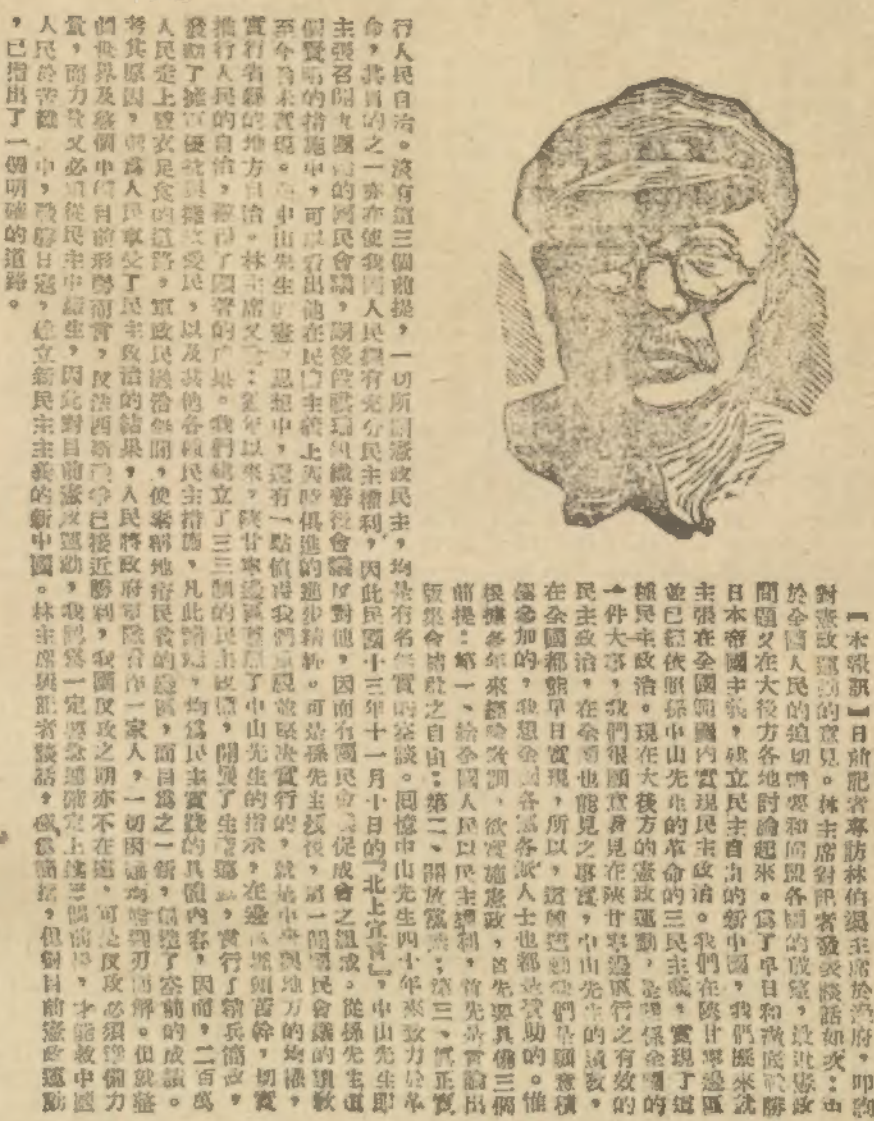 【本報訊】日前記者專訪林伯渠主席於邊府，叩詢
對憲政運動的意見。林主席對記者發表談話如次：由
於全國人民的迫切需要和同盟各國的敦促，最近憲政
問題又在大後方各地討論起來。為了早日和澈底戰勝
日本帝國主義，建立民主自由的新中國，我們歷來就
主張在全國範圍內實現民主政治。我們在陝甘寧邊區
並已經依照孫中山先生的革命的三民主義，實現了這
種民主政治。現在大後方的憲政運動，是關係全國的
一件大事，我們很願意看見在陝甘寧邊區行之有效的
民主政治，在全國也能見之事實，中山先生的遺教，
在全國都能早日實現，所以，這個運動我們是願意積
極參加的，我想全國各黨各派人士也都是贊助的。惟
根據多年來經驗教訓，欲實施憲政，首先要具備三個
前提：第一、給全國人民以民主權利，首先是言論出
版集會結社之自由；第二、開放黨禁；第三、真正實
行人民自治。沒有這三個前提，一切所謂憲政民主，均是有名無實的空談。回憶中山先生四十年來致力於革
命，其目的之一亦在使我國人民得有充分民主權利，因此民國十三年十一月十日的『北上宣言』，中山先生即
主張召開九團體的國民會議，嗣後段祺瑞組織善後會議反對他，因而有國民會議促成會之組成。從孫先生這
個賢明的措施中，可以看出他在民權主義上與時俱進的進步精神。可是孫先生歿後，這一開國民會議的遺教
至今尚未實現。在中山先生憲政思想中，還有一點值得我們重視並堅決實行的，就是中央與地方的均權，
實行省縣的地方自治。林主席又說：近年以來，陝甘寧邊區遵照了中山先生的指示，在邊區艱苦苦幹，切實
推行人民的自治，獲得了顯著的成果。我們建立了三三制的民主政權，開展了生產運動，實行了精兵簡政，
發動了擁軍優抗與擁政愛民，以及其他各種民主措施，凡此諸端，均為民主實踐的具體內容，因而，二百萬
人民走上豐衣足食的道路，軍政民融洽無間，使素稱地瘠民貧的邊區，面目為之一新，創造了空前的成績。
考其原因，就為人民享受了民主政治的結果，人民將政府軍隊合作一家人，一切困難均迎刃而解。但就整
個世界及整個中國目前形勢而言，反法西斯戰爭已接近勝利，我國反攻之期亦不在遠，可是反攻必須準備力
量，而力量又必須從民主中產生，因此對目前憲政運動，我認為一定要急速確定上述三個前提，才能救中國
人民於苦難中，戰勝日寇，建立新民主主義的新中國。林主席與記者談話，雖僅簡括，但對目前憲政運動
，已指出了一個明確的道路。